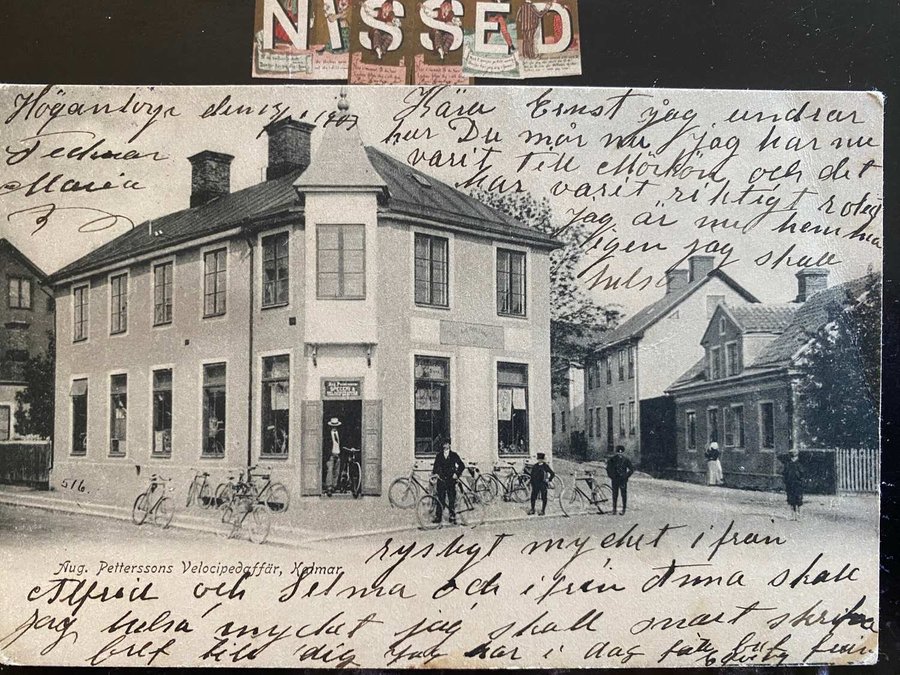 NISSED
Högantorp den 1907
Kära Ernst jag undrar
hur Du mår nu Jag har nu
varit till Mörkön och det
har varit riktigt roligt
jag är nu hemma
igen jag skall
helsa
Maria
Aug. Petterssons
516.
Aug. Petterssons Velocipedaffär, Kalmar
rysligt mycket ifrån
Alfrid och Selma och ifrån Anna skall
jag helsa mycket jag skall snart skrifva
bref till dig jag har i dag fått bref från